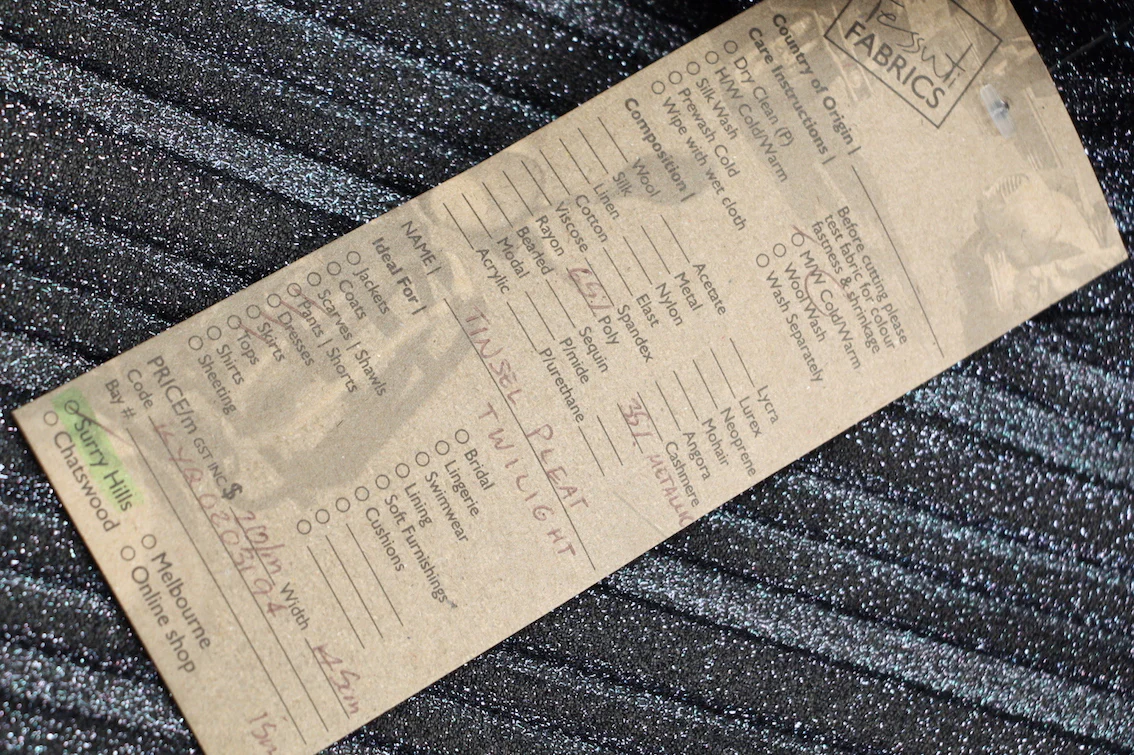 Tessuti
FABRICS
Country of Origin |
Care Instructions |
Before cutting please
test fabric for colour
fastness & shrinkage
Dry Clean (P)
H/W Cold/Warm
Silk Wash
Prewash Cold
Wipe with wet cloth
M/W Cold/Warm
Wool Wash
Wash Separately
Composition |
Wool
Silk
Linen
Cotton
Viscose
Rayon
Bearded
Modal
Acrylic
Acetate
Metal
Nylon
Elast
Spandex
65% Poly
Sequin
P/mide
P/urethane
Lycra
Lurex
Neoprene
Mohair
Angora
Cashmere
35% METALLIC
NAME | TINSEL PLEAT
TWILIGHT
Ideal For |
Jackets
Coats
Scarves | Shawls
Pants | Shorts
Dresses
Skirts
Tops
Shirts
Sheeting
Bridal
Lingerie
Swimwear
Lining
Soft Furnishings
Cushions
PRICE/m GST INC $ Width
Code
Bay #
Surry Hills
Chatswood
Melbourne
Online shop